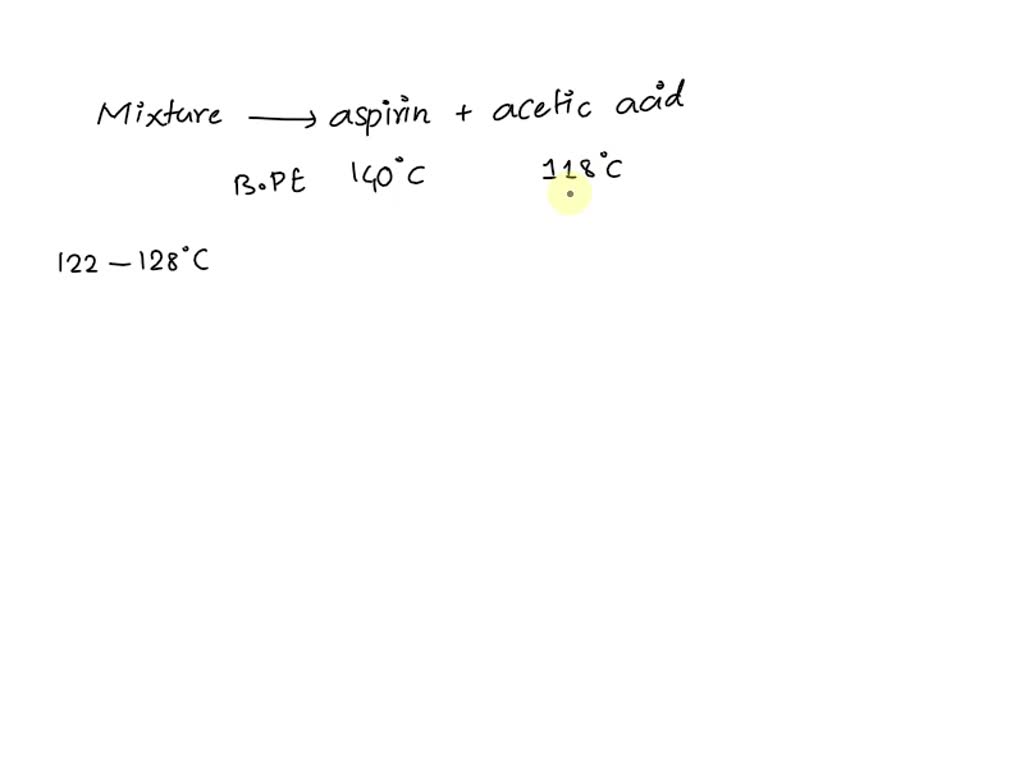 Mixture ⟶ aspirin + acetic acid
B.PE 140°C 118°C
122 – 128°C